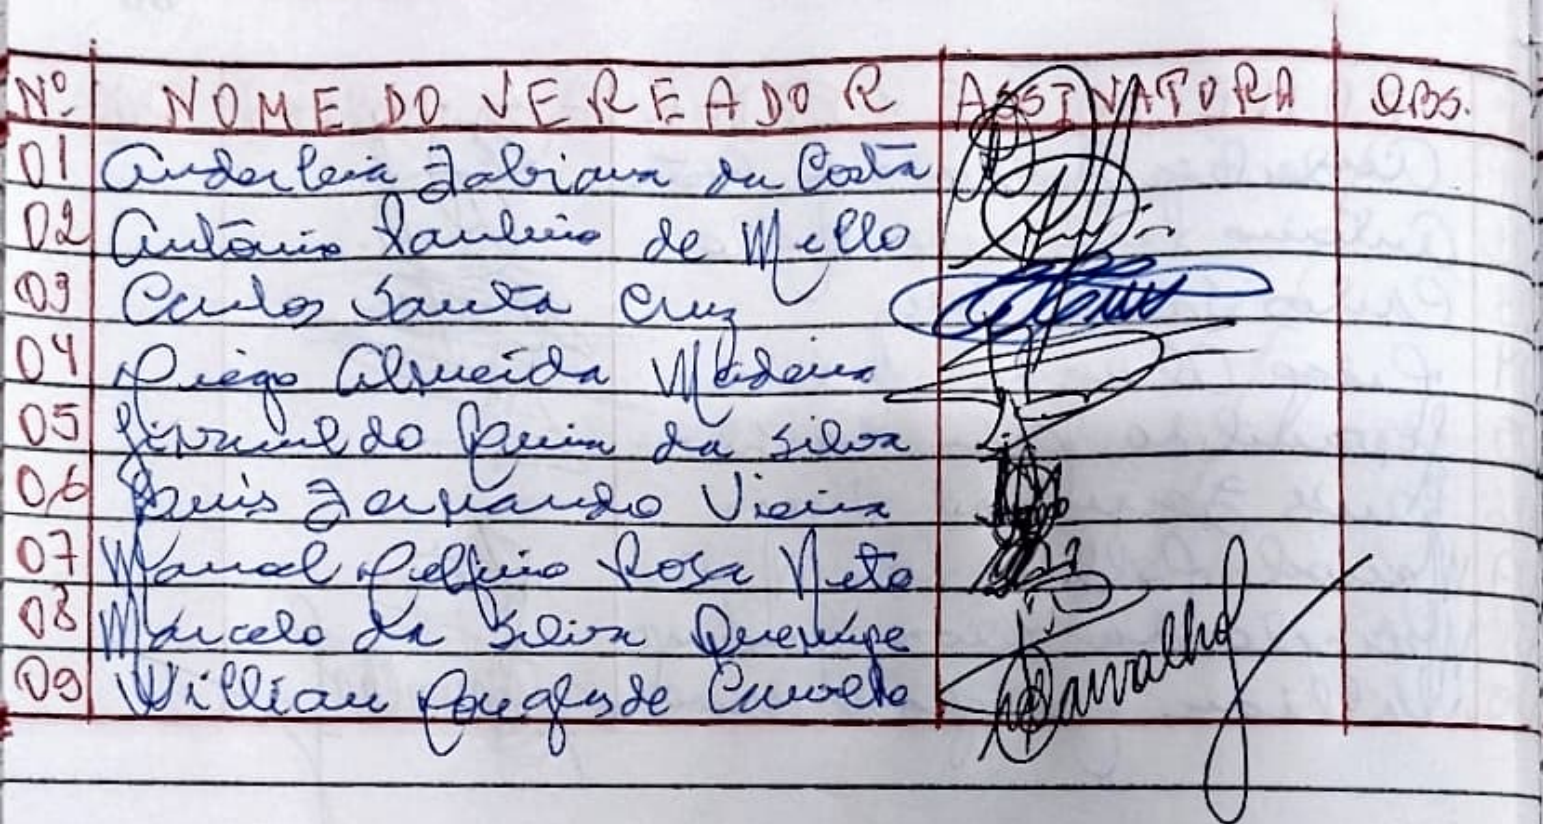 Nº NOME DO VEREADOR ASSINATURA OBS.
01 Anderleia Fabiana da Costa
02 Antônio Paulino de Mello
03 Carlos Santa Cruz
04 Diego Almeida Madeira
05 da Silva
06 Luis Fernando Vieira
07 Manoel Delfino Rosa Neto
08 Marcelo da Silva
09 Willian de Carvalho Carvalho